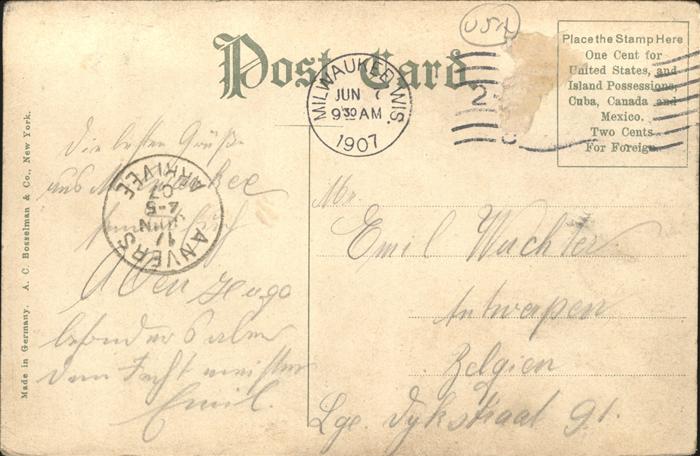 USA
Post Card
Place the Stamp Here
One Cent for
United States, and
Island Possessions,
Cuba, Canada and
Mexico.
Two Cents
For Foreign
MILWAUKEE, WIS.
JUN 7
9 30 AM
1907
2
Die besten Grüße
aus Milwaukee
Euch
Allen Hugo
besonders aber
dem Fechtmeister
Emil.
ANVERS
17
JUIN
4-5
07
ARRIVEE
Mr.
Emil Wachter
Antwerpen
Belgien
Lge. Dijkstraat 91.
Made in Germany. A. C. Bosselman & Co., New York.